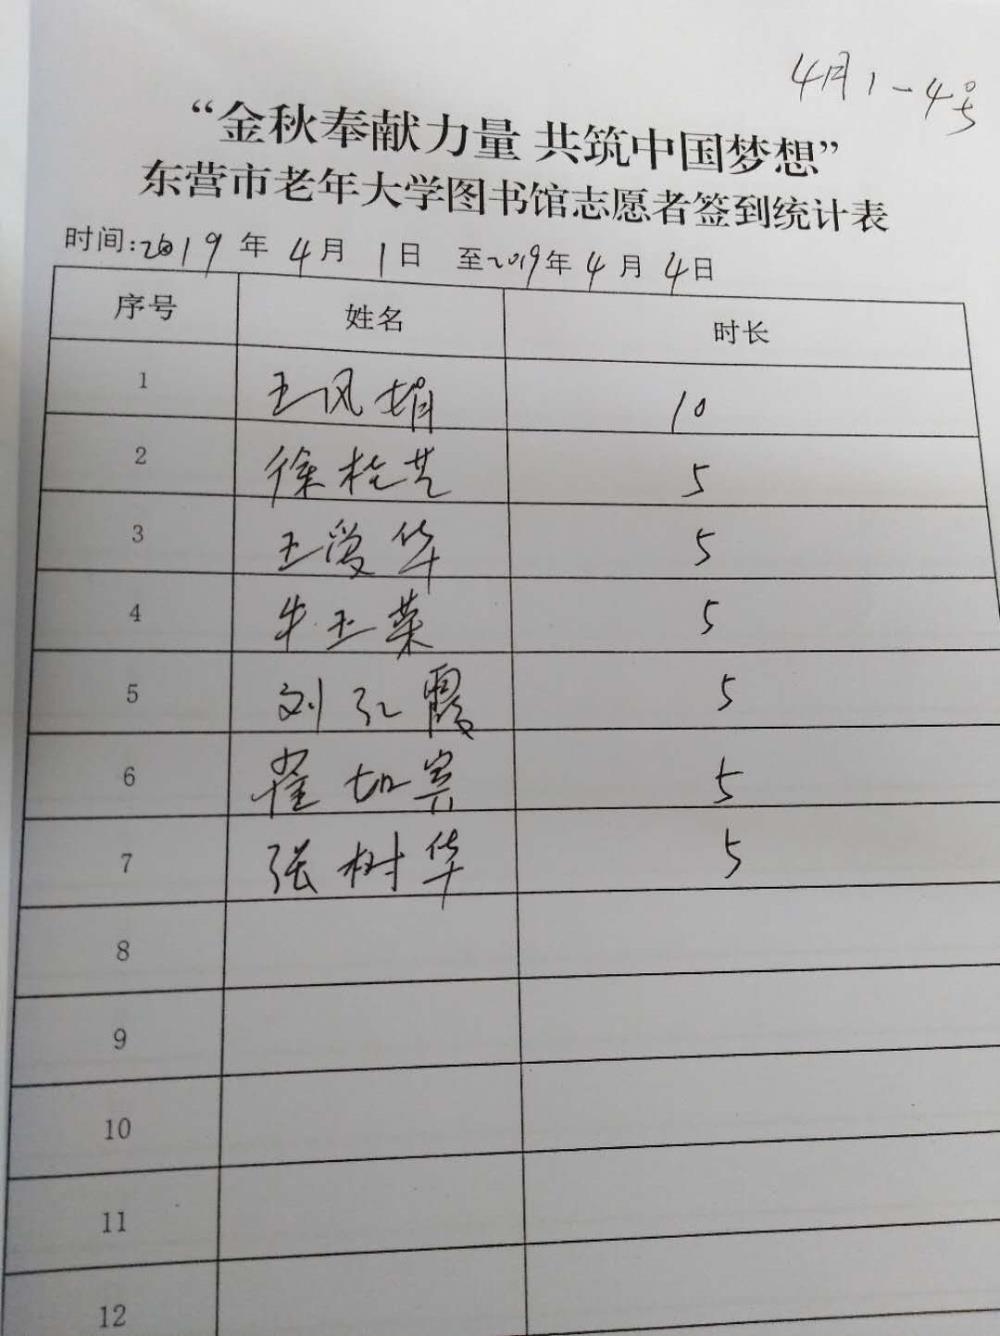 4月1-4号
“金秋奉献力量 共筑中国梦想”
东营市老年大学图书馆志愿者签到统计表
时间:2019年4月1日 至2019年4月4日
序号 姓名 时长
1 王风娟 10
2 徐桂芝 5
3 王爱华 5
4 牛玉荣 5
5 刘红霞 5
6 翟如宾 5
7 张树华 5
8
9
10
11
12